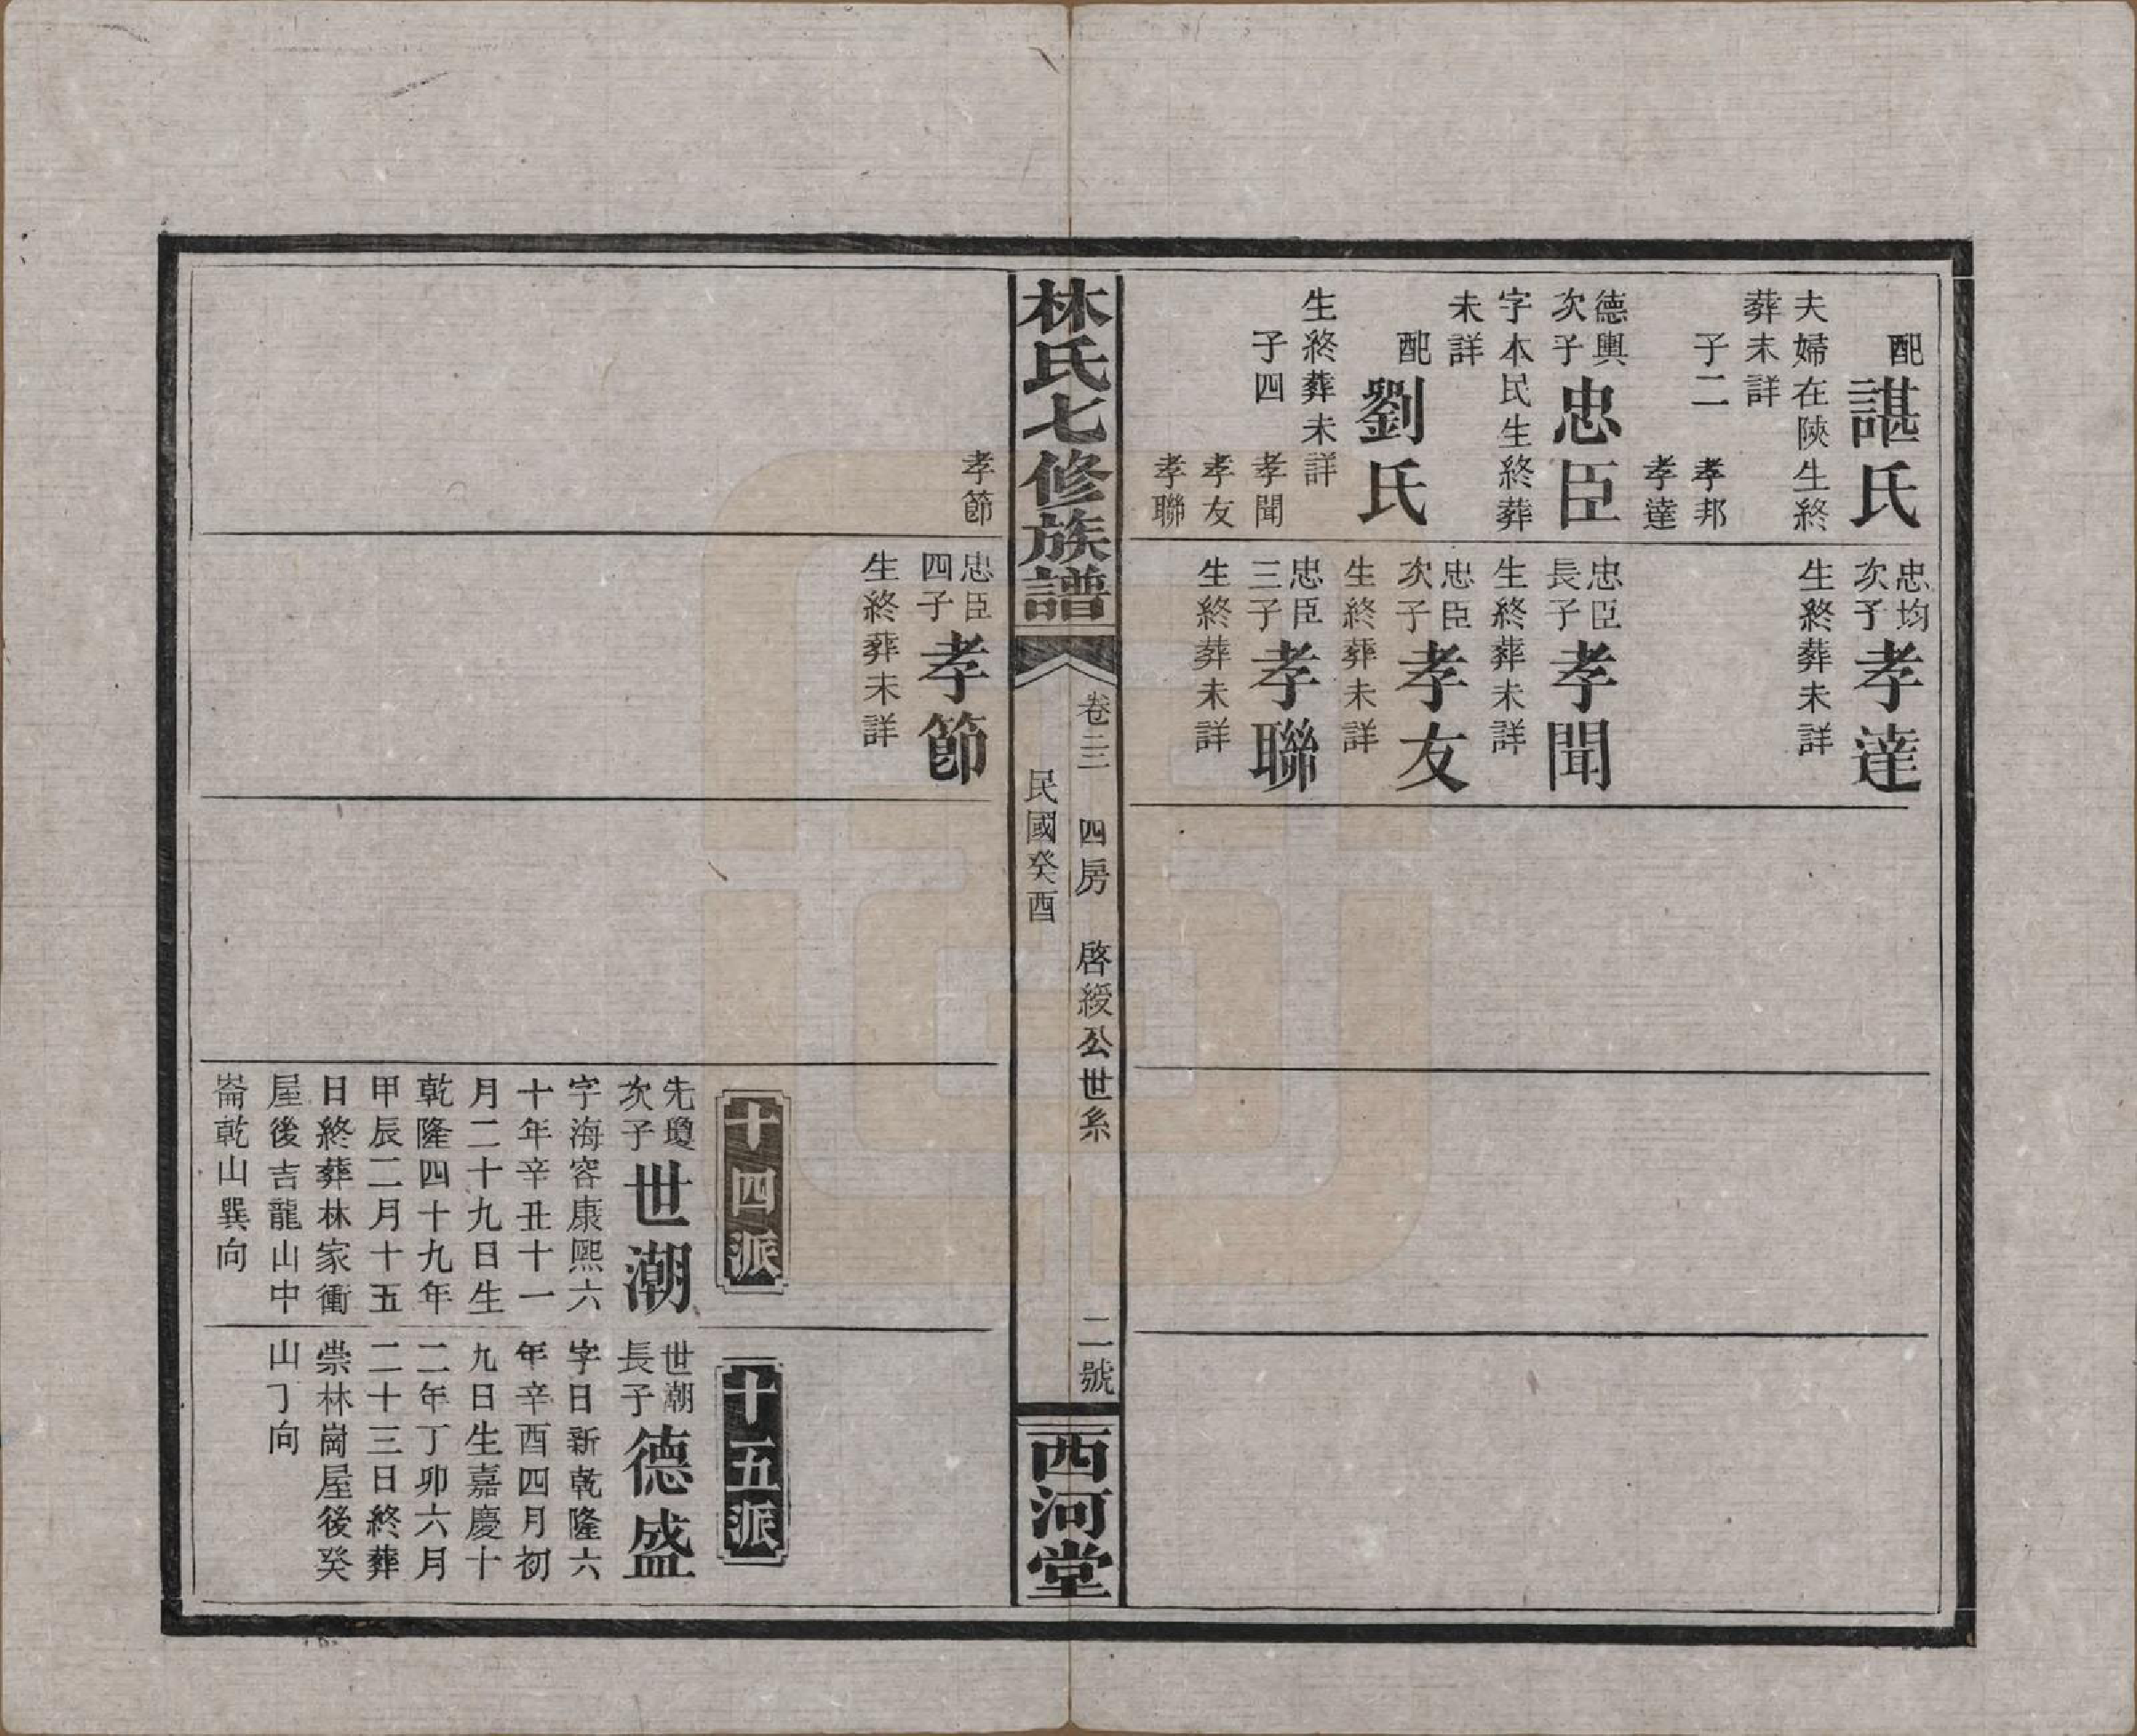 配諶氏
夫婦在陝生終
葬未詳
子二 孝邦
孝達
德輿次子忠臣
字本民生終葬
未詳
配劉氏
生終葬未詳
子四 孝聞
孝友
孝聯
忠均次子孝達
生終葬未詳
忠臣長子孝聞
生終葬未詳
忠臣次子孝友
生終葬未詳
忠臣三子孝聯
生終葬未詳
林氏七修族譜
卷三 四房 啓綬公世系 二號
民國癸酉
西河堂
孝節
忠臣四子孝節
生終葬未詳
十四派
先瓊次子世潮
字海容康熙六
十年辛丑十一
月二十九日生
乾隆四十九年
甲辰二月十五
日終葬林家衝
屋後吉龍山中
崙乾山巽向
十五派
世潮長子德盛
字日新乾隆六
年辛酉四月初
九日生嘉慶十
二年丁卯六月
二十三日終葬
崇林崗屋後癸
山丁向